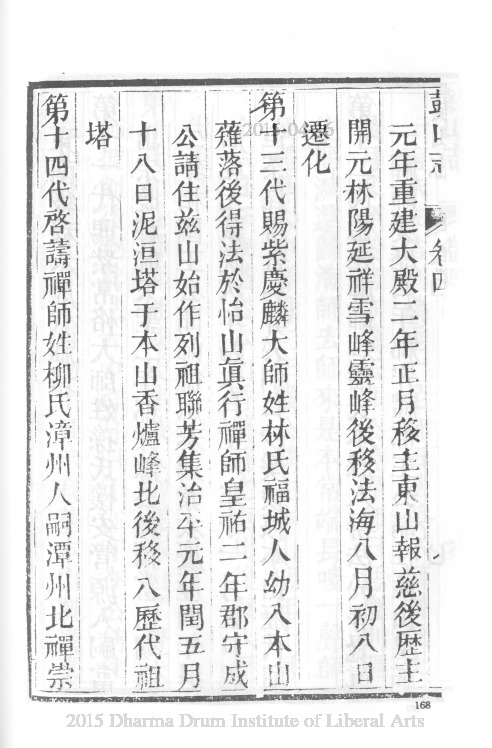 鼓山志 卷四
元年重建大殿二年正月移主東山報慈後歷主
開元林陽延祥雪峰靈峰後移法海八月初八日
遷化
第十三代賜紫慶麟大師姓林氏福城人幼入本山
薙落後得法於怡山眞行禪師皇祐二年郡守成
公請住兹山始作列祖聯芳集治平元年閏五月
十八日泥洹塔于本山香爐峰北後移入歷代祖
塔
第十四代啓譸禪師姓柳氏漳州人嗣潭州北禪崇
168
2015 Dharma Drum Institute of Liberal Arts